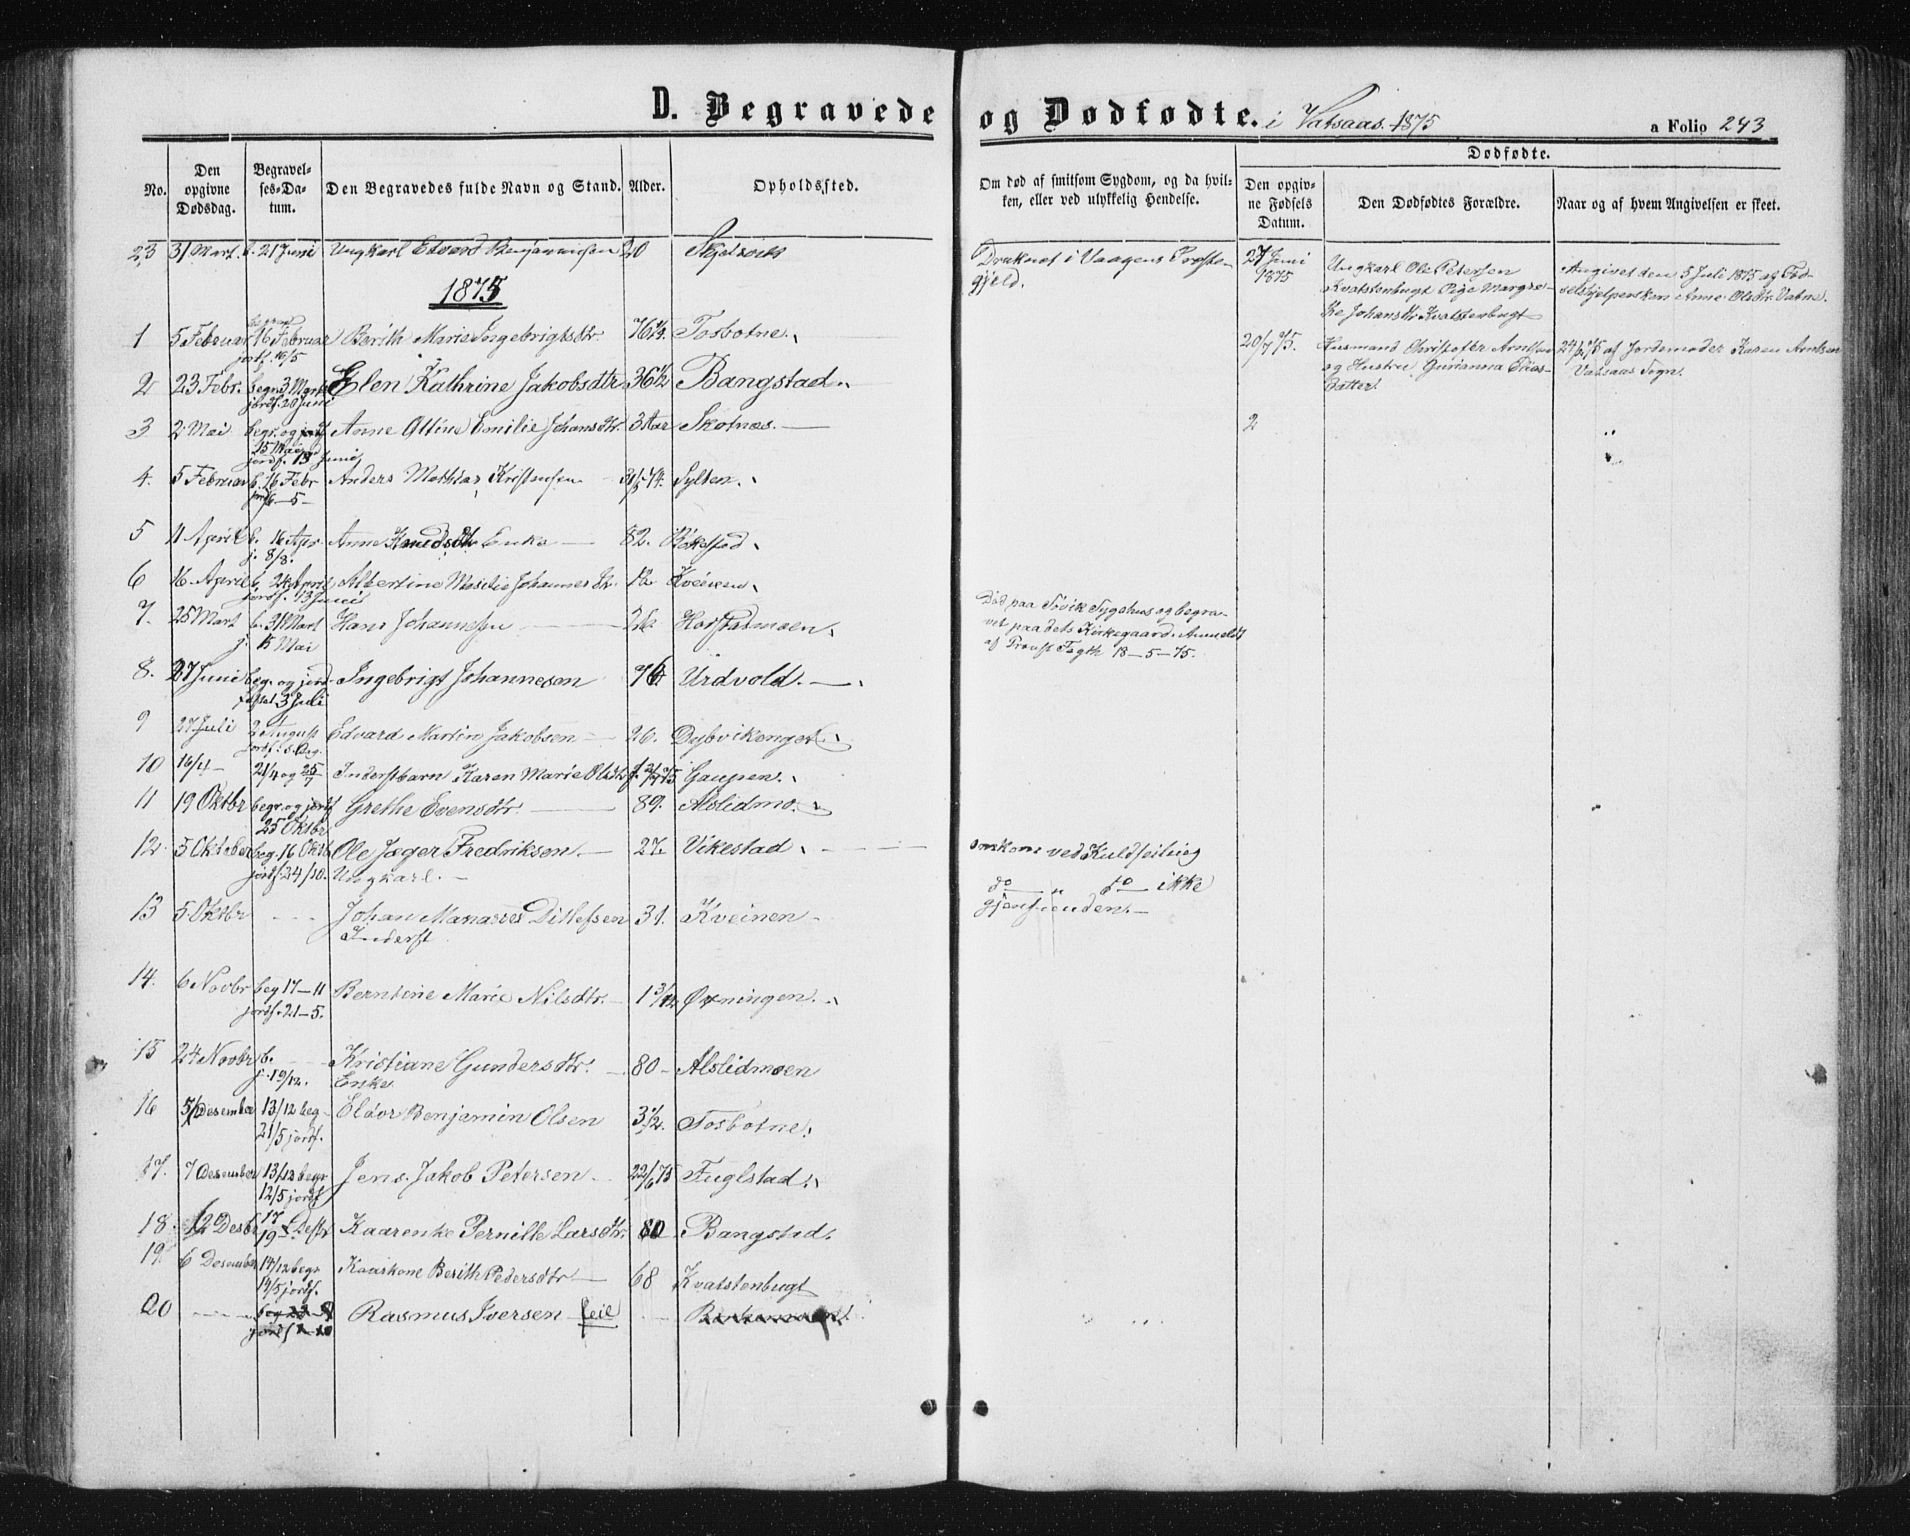 D. Begravede og Dødfødte. i Vatsaas 1875 a Folio 243
No.
Den opgivne Dødsdag.
Begravelses-Datum.
Den Begravedes fulde Navn og Stand.
Alder.
Opholdssted.
Om død af smitsom Sygdom, og da hvilken, eller ved ulykkelig Hendelse.
Dødfødte.
Den opgivne Fødsels Datum.
Den Dødfødtes Forældre.
Naar og af hvem Angivelsen er skeet.
23 31 Mart. b. 21 Juni Ungkarl Edvard Benjaminsen 20
Druknet i Vaagens Præste-
gjeld.
1875
1 5 Februar 16 Februar Berith Marie Ingebrigtsdtr. Tosbotne.
jordf. 16/5
2 23 Febr. begr. 3 Marts Elen Kathrine Jakobsdtr 36½ Bangstad
jordf. 20 Juni
3 2 Mai begr. og jordf Anne Ottine Emilie Johansdtr. 3 Aar Skotnes. —
15 Mai
jordf. 13 Juni
4. 5 Februar b. 16 Febr Anders Mathias Kristensen Sylten.
jordf 16—5—
5 11 April b. 16 Apr Anne Knudsdtr Enke — 82.
j. 8/8.
6 16 April b. 24 April Albertine Johannesdtr. 12 Kveinen
jordf. 13 Juni
7. 25 Mart b. 31 Mart Hans Johannesen — Horstadmoen
j. 15 Mai
8. 27 Juni beg. og jord- Ingebrigt Johannesen 76 Urdvold. —
fæstet 3 Juli
9 27 Juli 2 August Edvard Martin Jakobsen — 26. Dybvikenget
10 16/4 — 21/4 og 25/7 Inderstbarn Karen Marie Olsdtr Gaupen.
11 19 Oktbr begr. og jordf Grethe Evensdtr — 89. Alslidmo.
25 Oktbr
12 5 Oktober beg. 16 Oktb Ole Jæger Fredriksen. — 27. Vikestad
jordf. 24/10. Ungkarl. —
13 5 Oktbr — Johan Manasses Ditlefsen 31. Kveinen —
Inderst
14. 6 Novbr beg 17—11 Berntine Marie Nilsdtr. — 1 3/12 Øxningen.
jordf. 21—5.
15 24 Novbr b. Kristiane Gundersdtr. — 80 — Alslidmoen
j. 19/12. Enke
16 5/ Desember 13/12 beg. Eldor Benjamin Olsen 3½. Tosbotne.
21/5 jordf.
17. 7 Desember 13/12 begr Jens Jakob Petersen — 22/6 75 Fuglstad
12/5 jordf
18 12 Desbr 17
19 — Desbr Kaarenke Pernille Larsdtr. 80 Bangstad.
19. 6 Desember 14/12 begr Kaarkone Berith Pedersdtr — 68 Kvatstenbugt
14/5 jordf.
20 — Rasmus Iversen feil —
Død paa Søvik Sygehus og begra-
vet paa dets Kirkegaard. Anmeldt
af Provst 18—5—75.
omkom ved Kuldseiling
do — " do — ikke
gjenfunden. —
27 Juni
1875
Ungkarl Ole Petersen
Kvatstenbugt Pige Margre-
the Johansdtr Kvatstenbugt
Angivet den 5 Juli 1875 af Fød-
selshjelpersken Anne Olsdtr. Vatne.
20/7 75.
Husmand Christoffer Arntsen
og Hustru Gurianna
datter.
af Jordemoder Karen Arntsen
Vatsaas Sogn.
2